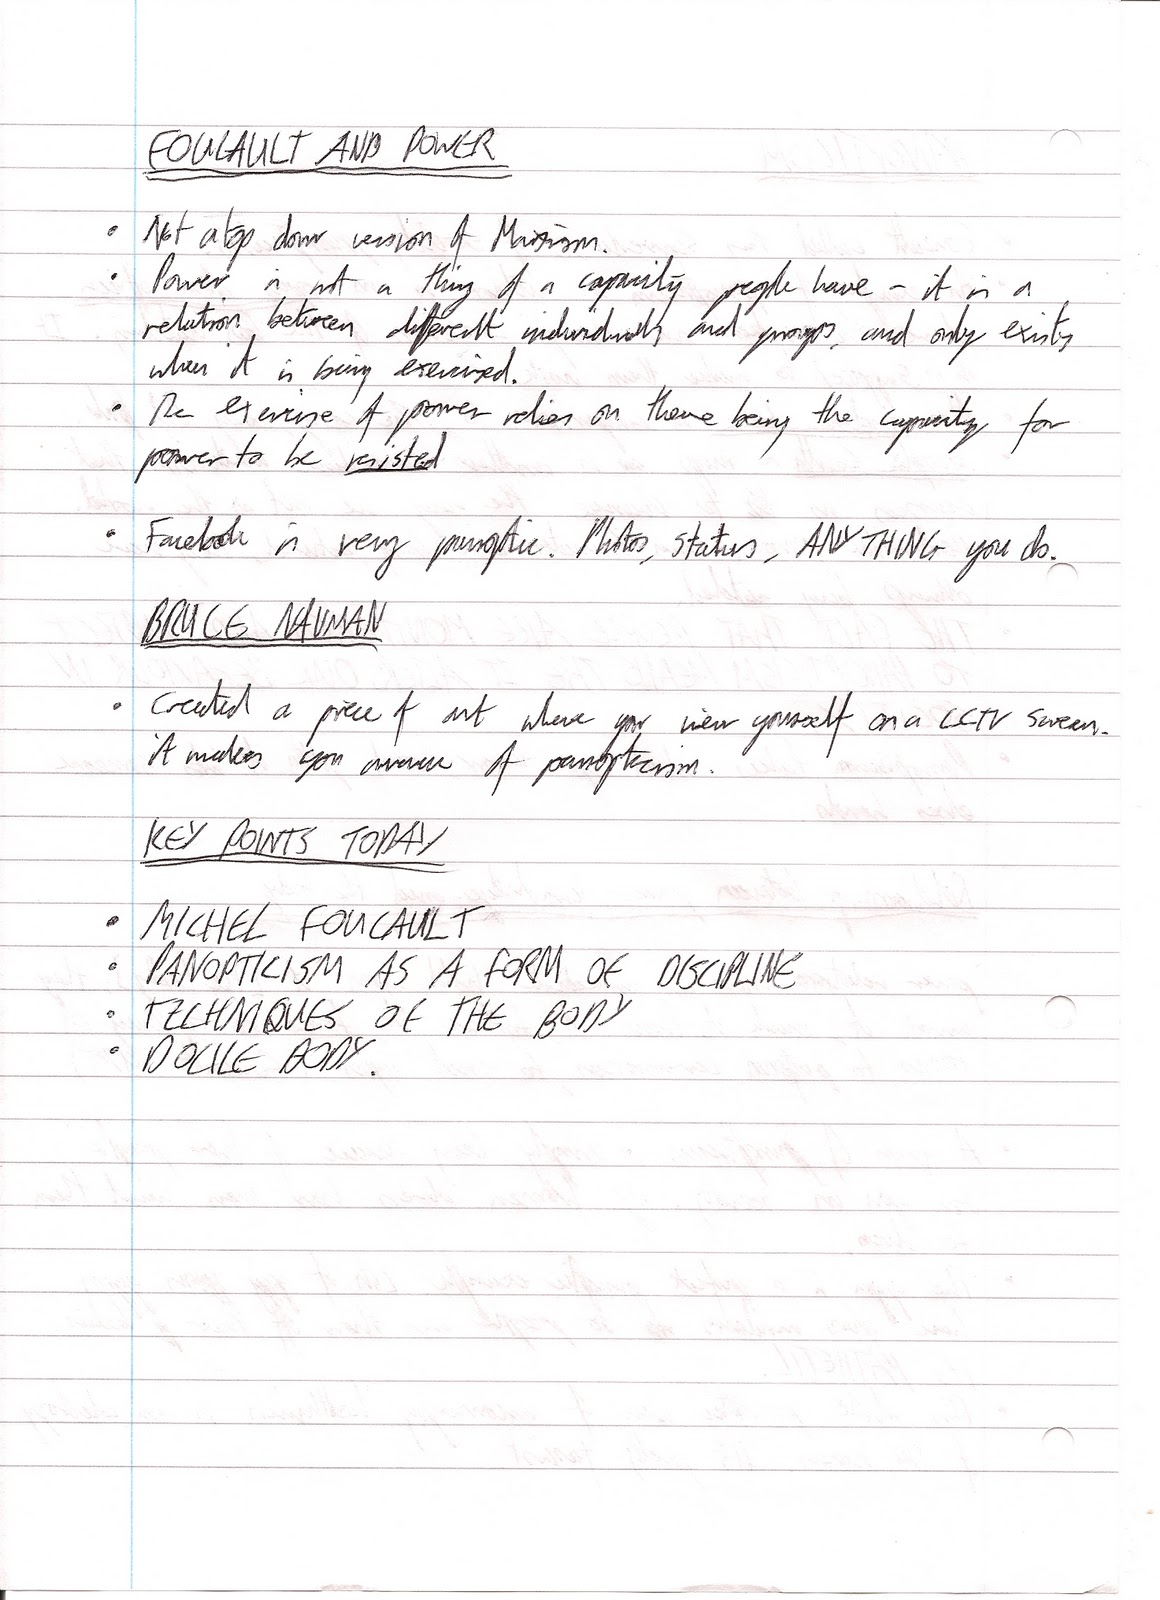 FOUCAULT AND POWER
• Not a top down version of Marxism.
• Power is not a thing of a capacity people have - it is a
relation between different individuals and groups, and only exists
when it is being exercised.
• The exercise of power relies on there being the capacity for
power to be resisted
• Facebook is very panoptic. Photos, status, ANYTHING you do.
BRUCE NAUMAN
• Created a piece of art where you view yourself on a CCTV screen.
it makes you aware of panopticism.
KEY POINTS TODAY
• MICHEL FOUCAULT
• PANOPTICISM AS A FORM OF DISCIPLINE
• TECHNIQUES OF THE BODY
• DOCILE BODY.